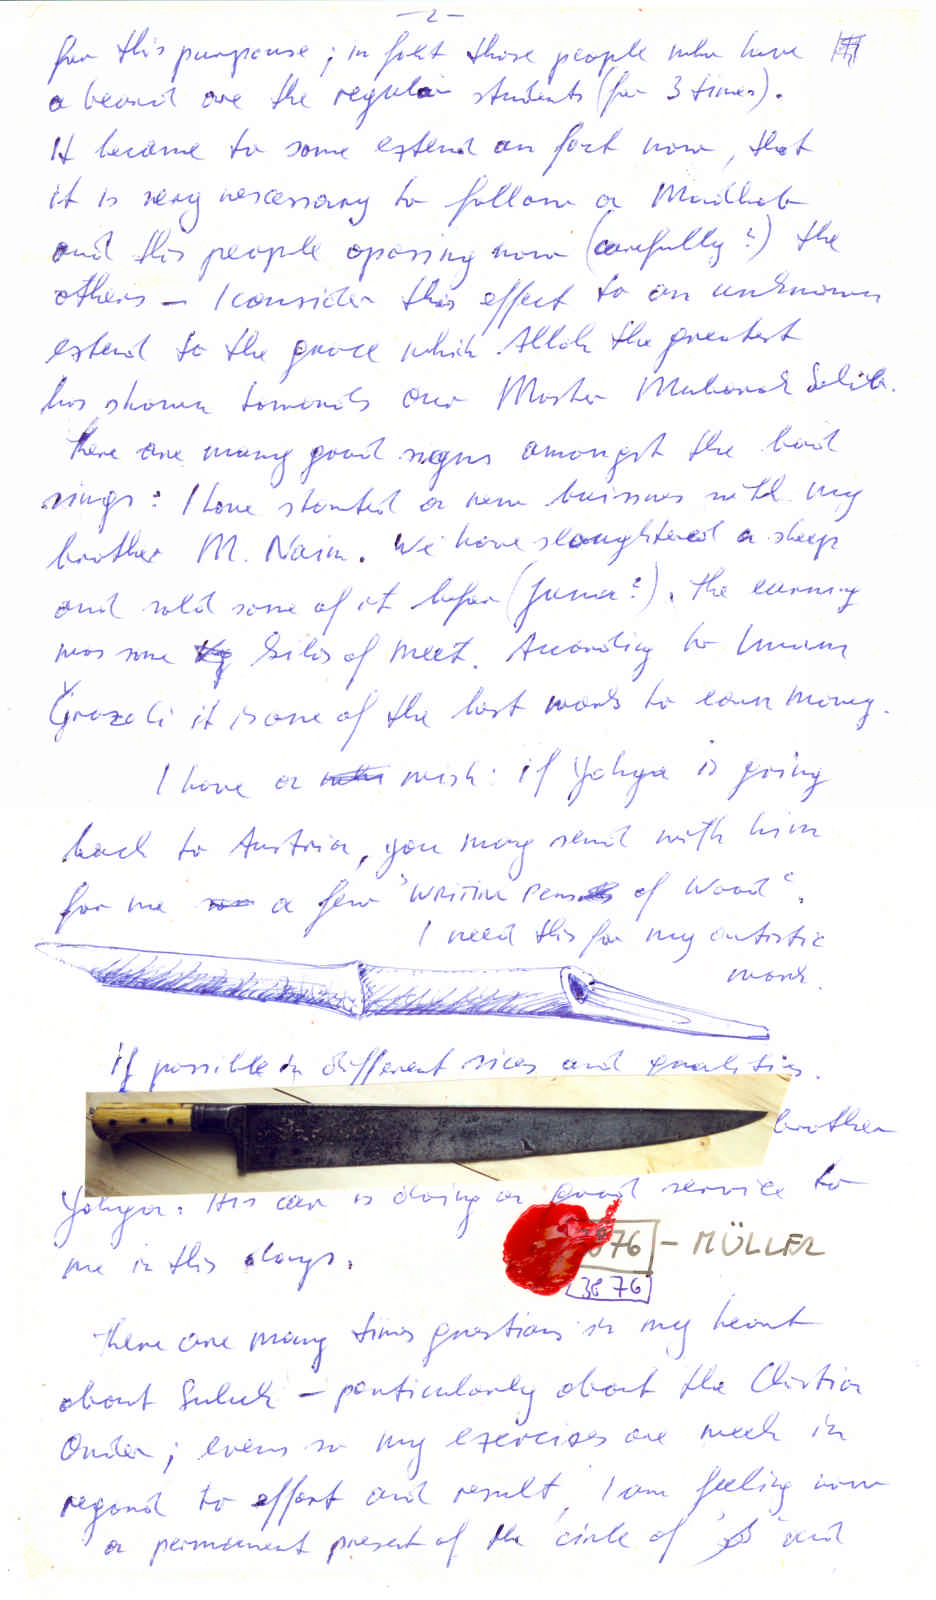 -2-
for this purpouse; in fakt those people who have
a beard are the regular students (for 3 times).
It became to some extend an fact now, that
it is very nescessary to follow a Madhab
and this people oposing now (carefully?) the
others - I consider this effect to an unknown
extend to the grace which Allah the greatest
has shown towards our Master Mubarak Sahib.
There are many good signs amongst the bad
sings: I have started a new buissnes with my
brother M. Naim. We have slaughtered a sheep
and sold some of it befor (Juma?). The earning
was some Kilos of meet. According to Imam
Ğazali it is one of the last works to earn money.
I have a wish: if Yahya is going
back to Austria, you may send with him
for me a few "WRITING PENS of Wood".
I need this for my autistic
work.
If possible in different sices and qualities.
brother
Yahya. His car is doing a good service to
me in this days.
76 - MÜLLER
3876
There are many times questions in my heart
about Suluk - particularly about the Chistia
Order; evens so my exercises are week in
regard to effort and result, I am feeling now
a permanent present of the circle of and